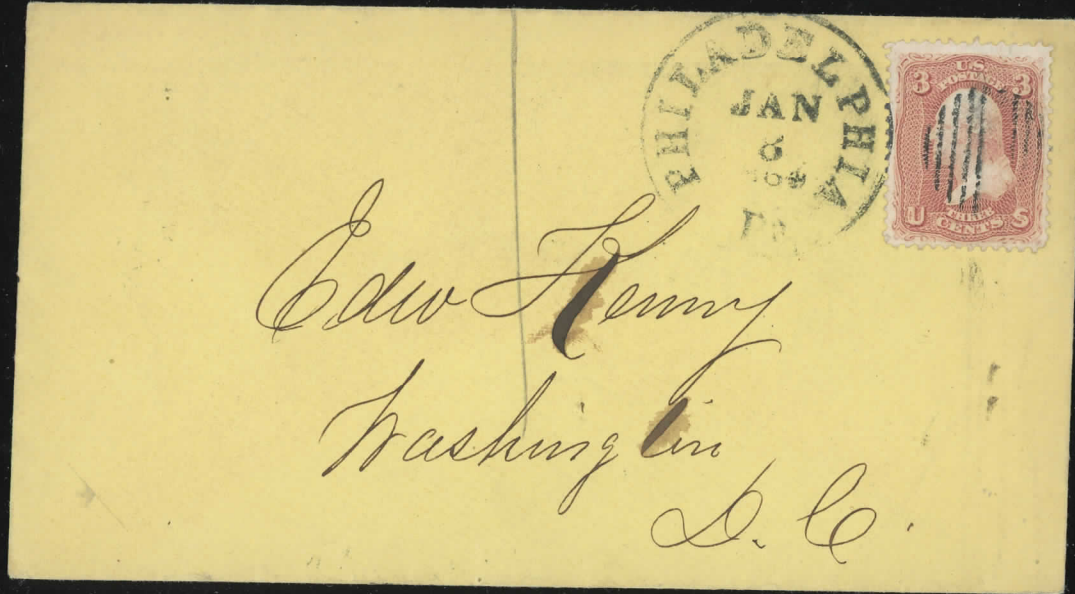 PHILADELPHIA
JAN
8
Pa.
3 U.S. 3
POSTAGE
U THREE S
CENTS
Edw Kenny
Washington
D. C.